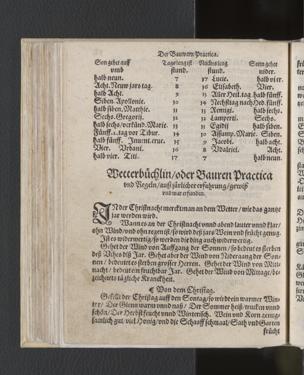 Der Bauwren Practica.
Son gehet auff Tag leng ist Nacht leng Sonn gehet
vmb stund. stund. nider.
halb neun. 7 17 Lucie. halb vier.
Acht. Neuw jars tag. 8 16 Elisabeth. Vier.
halb Acht. 9 15 Aller Heil. tag halb fünff.
Siben. Apollonie. 10 14 nach Hed. fünff.
halb siben. Matthie. 11 Remigi. halb sechs.
Sechs. Gregorij. 12 12 Lamperti. Sechs.
halb sechs / Marie. 11 Egidij halb siben.
14 10 Marie. Siben.
halb fünff. 15 9 Jacobi. halb acht.
Vier. Vrbani. 16 8 Vdalrici. Acht.
halb vier. Viti. 17 7 halb neun.
Wetterbüchlin / oder Bauren Practica
vnd Regeln / auß järlicher erfahrung / gewiß
vnd war erfunden.
IN der Christnacht mercke man an dem Wetter / wie das gantz
jar werden wird.
Wann es an der Christnacht vnnd abend lauter vnnd klar /
ohn Wind / vnd ohn regen ist / so wird deß jars Wein vnd frücht gnug.
Ist es widerwertig / so werden die ding auch widerwertig.
Gehet der Wind von Auffgang der Sonnen / so bedeut es sterben
deß Vihes diß Jar. Gehet aber der Wind von Nidergang der Son-
nen / bedeutet es sterben grosser Herren. Gehet der Wind von Mitt-
nacht / bedeut ein fruchtbar Jar. Gehet der Wind von Mittage / be-
zeichnet es tägliche Kranckheit.
¶ Von dem Christag.
Gefellt der Christag auff den Sontag / so wird ein warmer Win-
ter / Der Glentz warm vnnd naß / Der Sommer heiß / trucken vnnd
schön / Der Herbst feucht vnnd Winterisch. Wein vnd Korn
gut / viel Honig / vnd die Schaaff / Saat vnd Garten
frücht